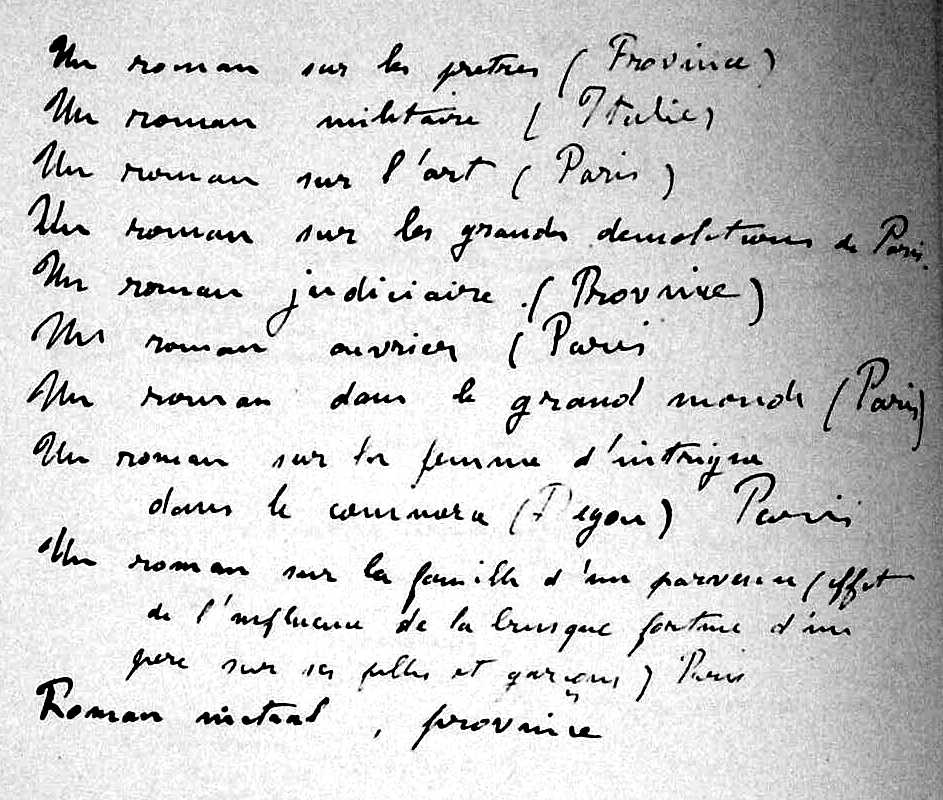 Un roman sur les pretres (Province)
Un roman militaire (Italie)
Un roman sur l'art (Paris)
Un roman sur les grandes demolitions de Paris.
Un roman judiciaire. (Province)
Un roman ouvrier (Paris
Un roman dans le grand monde (Paris)
Un roman sur la femme d'intrigue
dans le commerce ( ) Paris
Un roman sur la famille d'un parvenu (effet
de l'influence de la brusque fortune d'un
pere sur ses filles et garçons) Paris
Roman initial, province